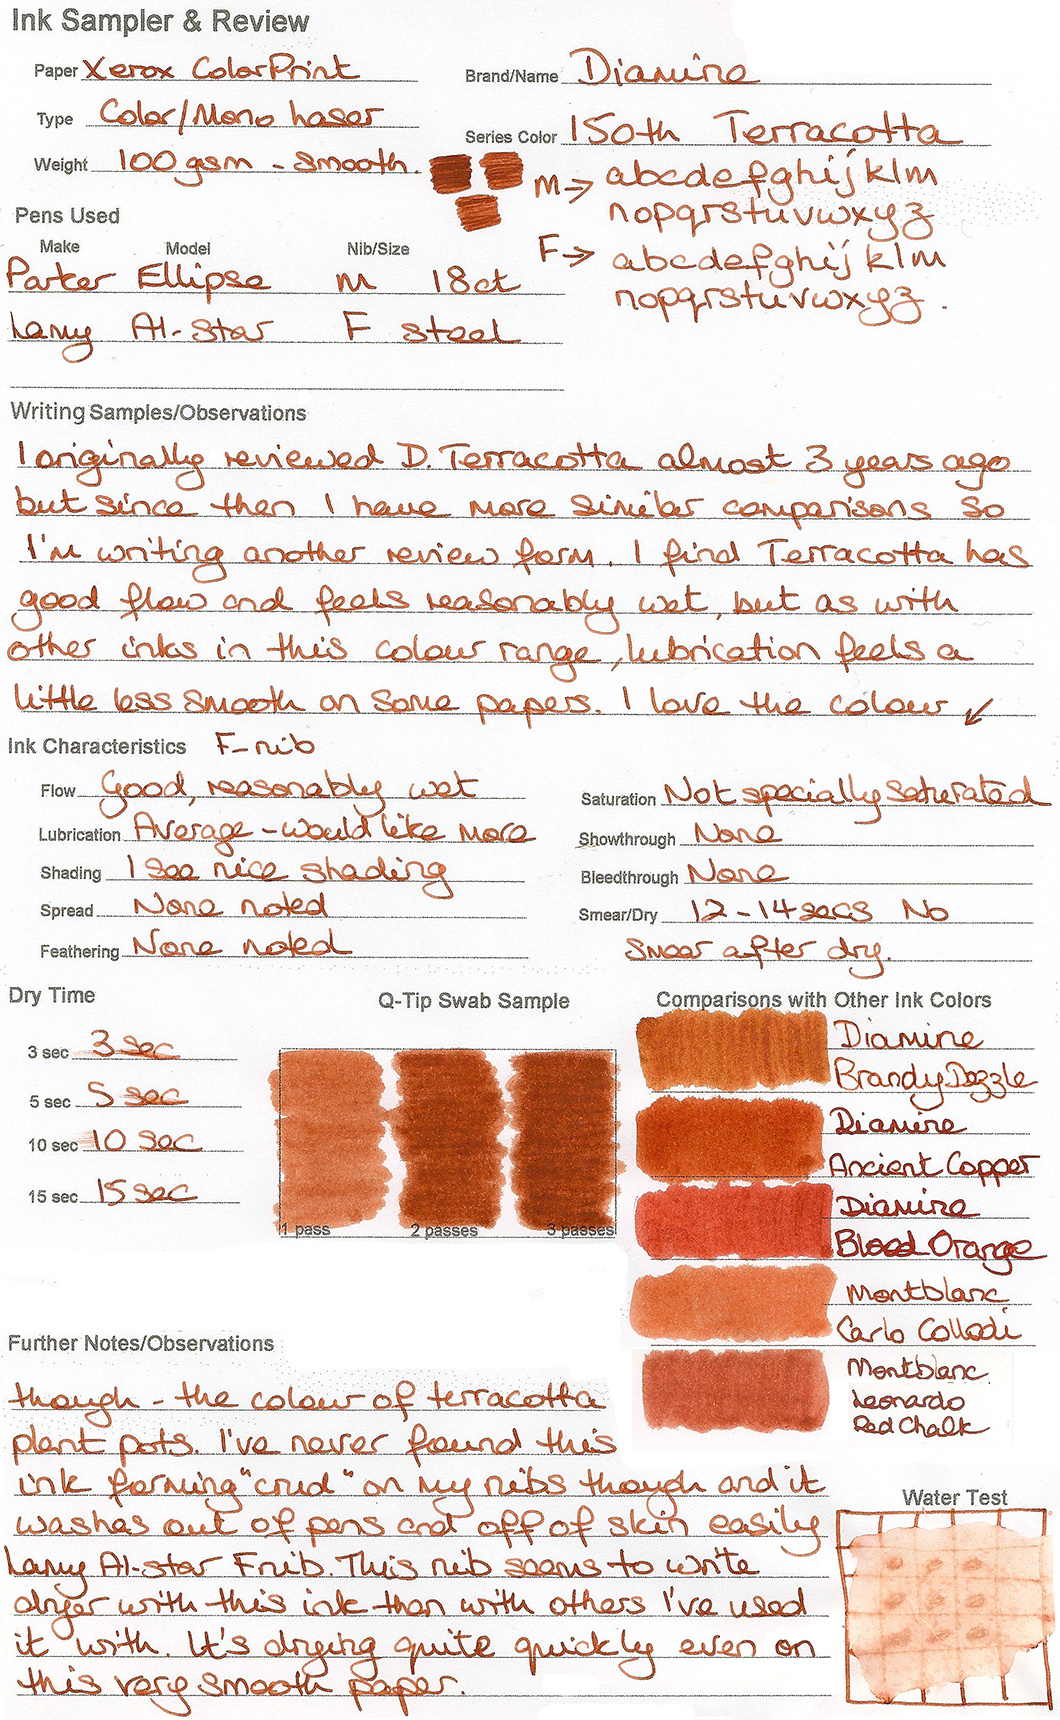 Ink Sampler & Review
Paper Xerox ColorPrint
Type Color/Mono Laser
Weight 100gsm - Smooth.
Brand/Name Diamine
Series Color 150th Terracotta
M→ abcdefghijklm
nopqrstuvwxyz
F→ abcdefghijklm
nopqrstuvwxyz.
Pens Used
Make Model Nib/Size
Parker Ellipse M 18ct
Lamy Al-Star F steel
Writing Samples/Observations
I originally reviewed D. Terracotta almost 3 years ago
but since then I have more similar comparisons so
I'm writing another review form. I find Terracotta has
good flow and feels reasonably wet, but as with
other inks in this colour range, lubrication feels a
little less smooth on some papers. I love the colour ↙
Ink Characteristics F-nib
Flow Good, reasonably wet
Lubrication Average - would like more
Shading I see nice shading
Spread None noted
Feathering None noted
Saturation Not specially saturated
Showthrough None
Bleedthrough None
Smear/Dry 12-14secs No
Smear after dry.
Dry Time
3 sec 3 sec
5 sec 5 sec
10 sec 10 sec
15 sec 15 sec
Q-Tip Swab Sample
1 pass 2 passes 3 passes
Comparisons with Other Ink Colors
Diamine
Brandy Dazzle
Diamine
Ancient Copper
Diamine
Blood Orange
Montblanc
Carlo Collodi
Montblanc
Leonardo
Red Chalk
Further Notes/Observations
though - the colour of terracotta
plant pots. I've never found this
ink forming "crud" on my nibs though and it
washes out of pens and off of skin easily
Lamy Al-star F nib. This nib seems to write
dryer with this ink than with others I've used
it with. It's drying quite quickly even on
this very smooth paper.
Water Test